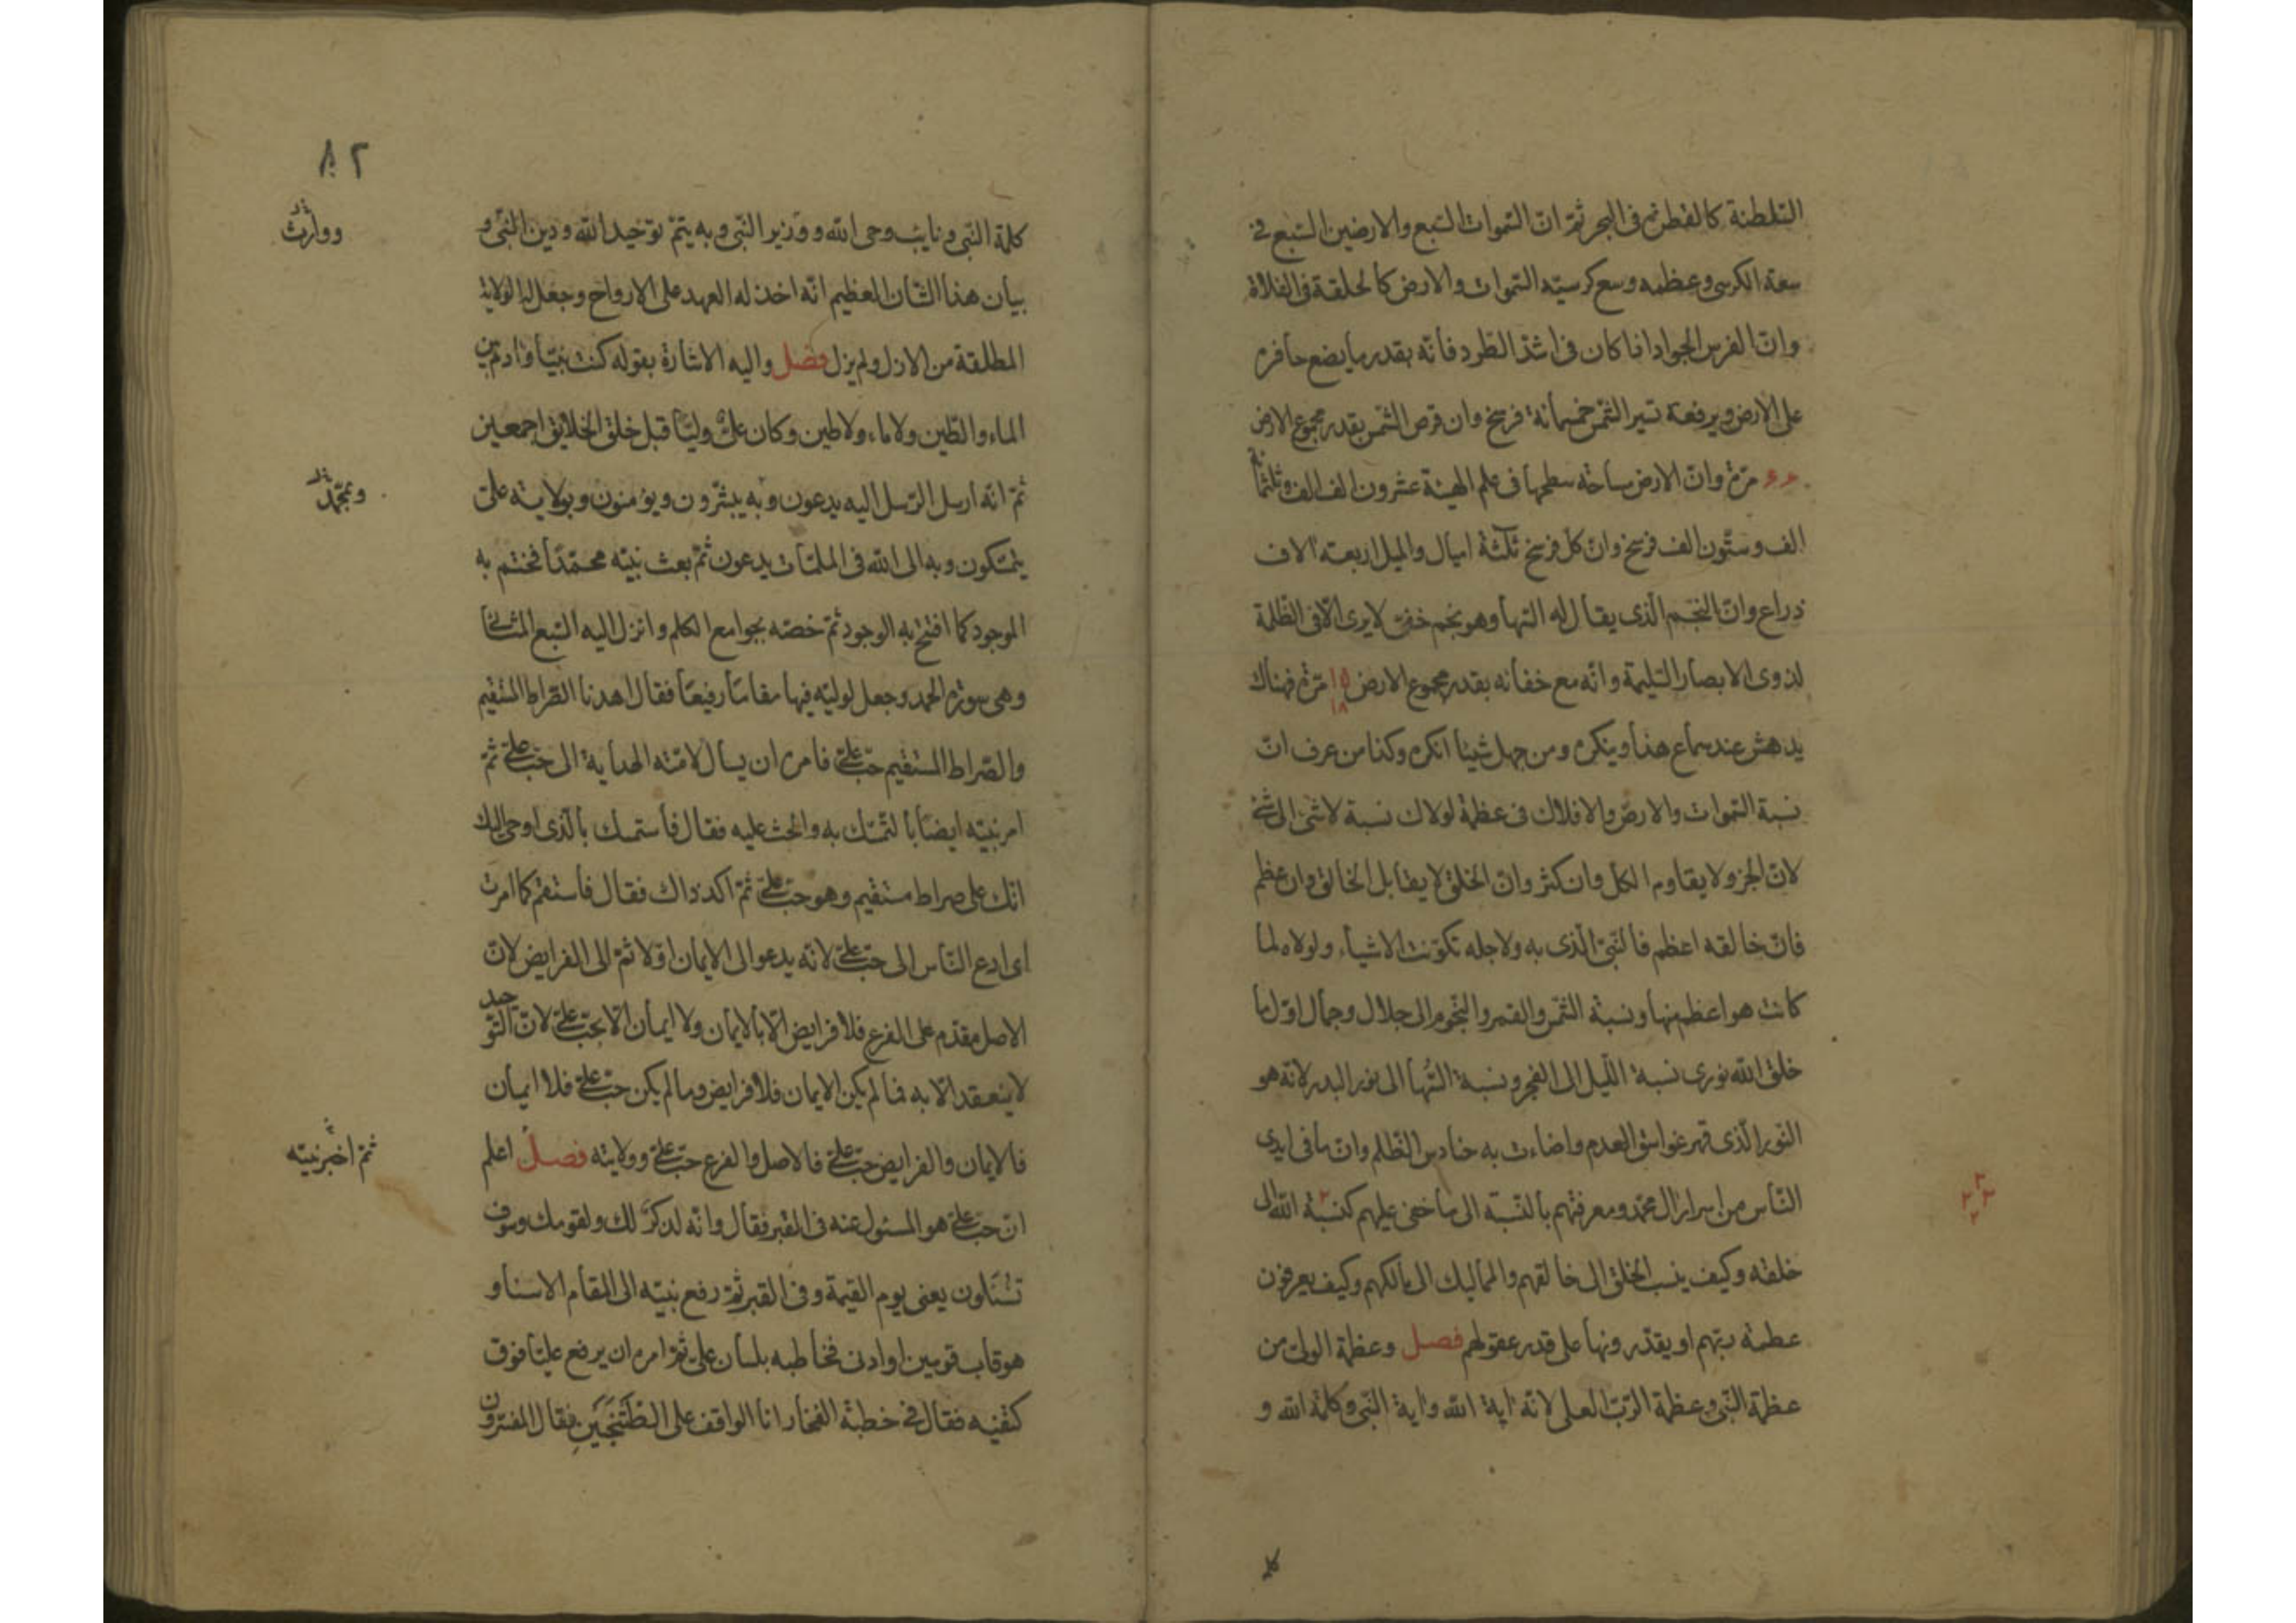 السلطنة كالقطرة فى البحر ثمّ انّ السّموات السّبع والارضين السّبع فى
سعة الكرسى وعظمه وسع كرسيّه السّموات والارض كالحلقة فى الفلاة
وانّ الفرس الجواد اذا كان فى اشدّ الطّرد فانّه بقدر ما يضع حافره
على الارض ويرفعه تسير الشّمس خمسمائة فرسخ وان قرص الشّمس بقدر مجموع الارض
مرّة وانّ الارض مساحة سطحها فى علم الهيئة عشرون الف الف وثلثمائة
الف وستّون الف فرسخ وانّ كلّ فرسخ ثلثة اميال والميل اربعة آلاف
ذراع وانّ النّجم الّذى يقال له السّها وهو نجم خفىّ لا يرى الّا فى الظّلمة
لذوى الابصار السّليمة وانّه مع خفائه بقدر مجموع الارض ١٥ ١٨ مرّة فهناك
يدهش عند سماع هذا وينكره ومن جهل شيئا انكره وكذا من عرف انّ
نسبة السّموات والارض والافلاك فى عظمة لولاك نسبة لا شئ الى شئ
لانّ الجزو لا يقاوم الكلّ وان كثر وانّ الخلق لا يقابل الخالق وان عظم
فانّ خالقه اعظم فالنّبىّ الّذى به ولاجله تكوّنت الاشياء ولولاه لما
كانت هو اعظم منها ونسبة الشّمس والقمر والنّجوم الى جلال وجمال اوّل ما
خلق الله نورى نسبة اللّيل الى الفجر ونسبة السّها الى نور البدر لانّه هو
النّور الّذى قهر غواسق العدم واضاءت به حنادس الظّلم وانّ ما فى ايدى
النّاس من اسرار ال محمّد ومعرفتهم بالنّسبة الى ما خفى عليهم كنسبة الله الى
خلقه وكيف ينسب الخلق الى خالقهم والمماليك الى مالكهم وكيف يعرفون
عظمة ربّهم او يقدّرونها على قدر عقولهم فصل وعظمة الولىّ من
عظمة النّبى وعظمة الرّبّ العلى لانّه اية الله واية النّبى وكلمة الله و
٨٢
كلمة النّبى ونايب وحى الله ووزير النّبى وبه يتمّ توحيد الله ودين النّبى و
ووارث
بيان هذا الشّان العظيم انّه اخذ له العهد على الارواح وجعل له الولاية
المطلقة من الازل ولم يزل فصل واليه الاشارة بقوله كنت نبيّا وادم بين
الماء والطّين ولا ماء ولا طين وكان علىّ وليّا قبل خلق الخلايق اجمعين
ثمّ انّه ارسل الرّسل اليه يدعون وبه يبشّرون ويؤمنون وبولاية علىّ
وبمحمّد
يتمسّكون وبه الى الله فى الملمّات يدعون ثمّ بعث نبيّه محمّدًا فختم به
الموجود كما افتتح به الوجود ثمّ خصّه بجوامع الكلم وانزل اليه السّبع المثانى
وهى سورة الحمد وجعل لوليّه فيها مقامًا رفيعًا فقال اهدنا الصّراط المستقيم
والصّراط المستقيم حبّ علىّ فامره ان يسال لامّته الهداية الى حبّ علىّ ثمّ
امر نبيّه ايضًا بالتّمسّك به والحثّ عليه فقال فاستمسك بالّذى اوحى اليك
انّك على صراط مستقيم وهو حبّ علىّ ثمّ اكد ذاك فقال فاستقم كما امرت
اى ادع النّاس الى حبّ علىّ لانّه يدعو الى الايمان اوّلا ثمّ الى الفرايض لانّ
الاصل مقدّم على الفرع فلا فرايض الّا بالايمان ولا ايمان الّا بحبّ علىّ لانّ التّوحيد
لا ينعقد الّا به فما لم يكن الايمان فلا فرايض وما لم يكن حبّ علىّ فلا ايمان
فالايمان والفرايض حبّ علىّ فالاصل والفرع حبّ علىّ وولايته فصل اعلم
ثمّ اخبر نبيّه
انّ حبّ علىّ هو المسئول عنه فى القبر فقال وانّه لذكر لك ولقومك وسوف
تسئلون يعنى يوم القيمة وفى القبر ثمّ رفع نبيّه الى المقام الاسنا و
هو قاب قوسين او ادنى فخاطبه بلسان علىّ ثمّ امره ان يرفع عليّا فوق
كتفيه فقال فى خطبة الفخار انا الواقف على الطّتنجين فقال المفسّرون